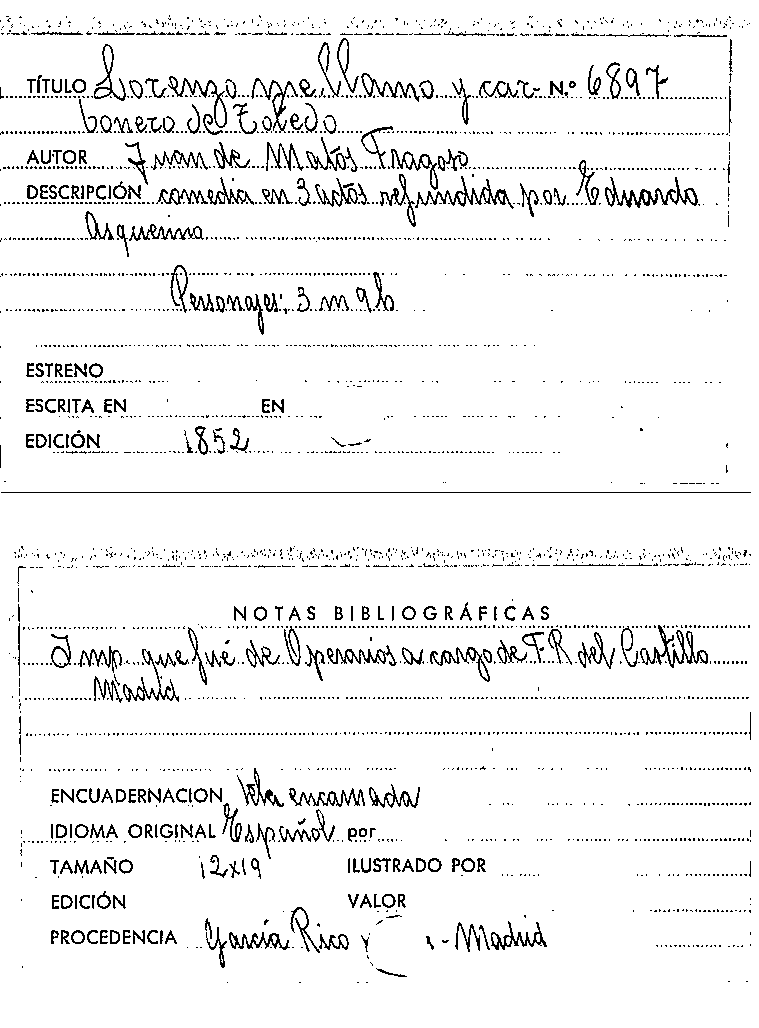 TÍTULO Lorenzo me llamo y car- N.º 6897
bonero de Toledo
AUTOR Juan de Matos Fragoso
DESCRIPCIÓN comedia en 3 actos refundida por Eduardo
Asquerino
Personajes: 3 m 9 h
ESTRENO
ESCRITA EN EN
EDICIÓN 1852
NOTAS BIBLIOGRÁFICAS
Imp. que fué de Operarios a cargo de F. R. del Castillo
Madrid
ENCUADERNACION tela encarnada
IDIOMA ORIGINAL Español por
TAMAÑO 12x19 ILUSTRADO POR
EDICIÓN VALOR
PROCEDENCIA García Rico y - Madrid